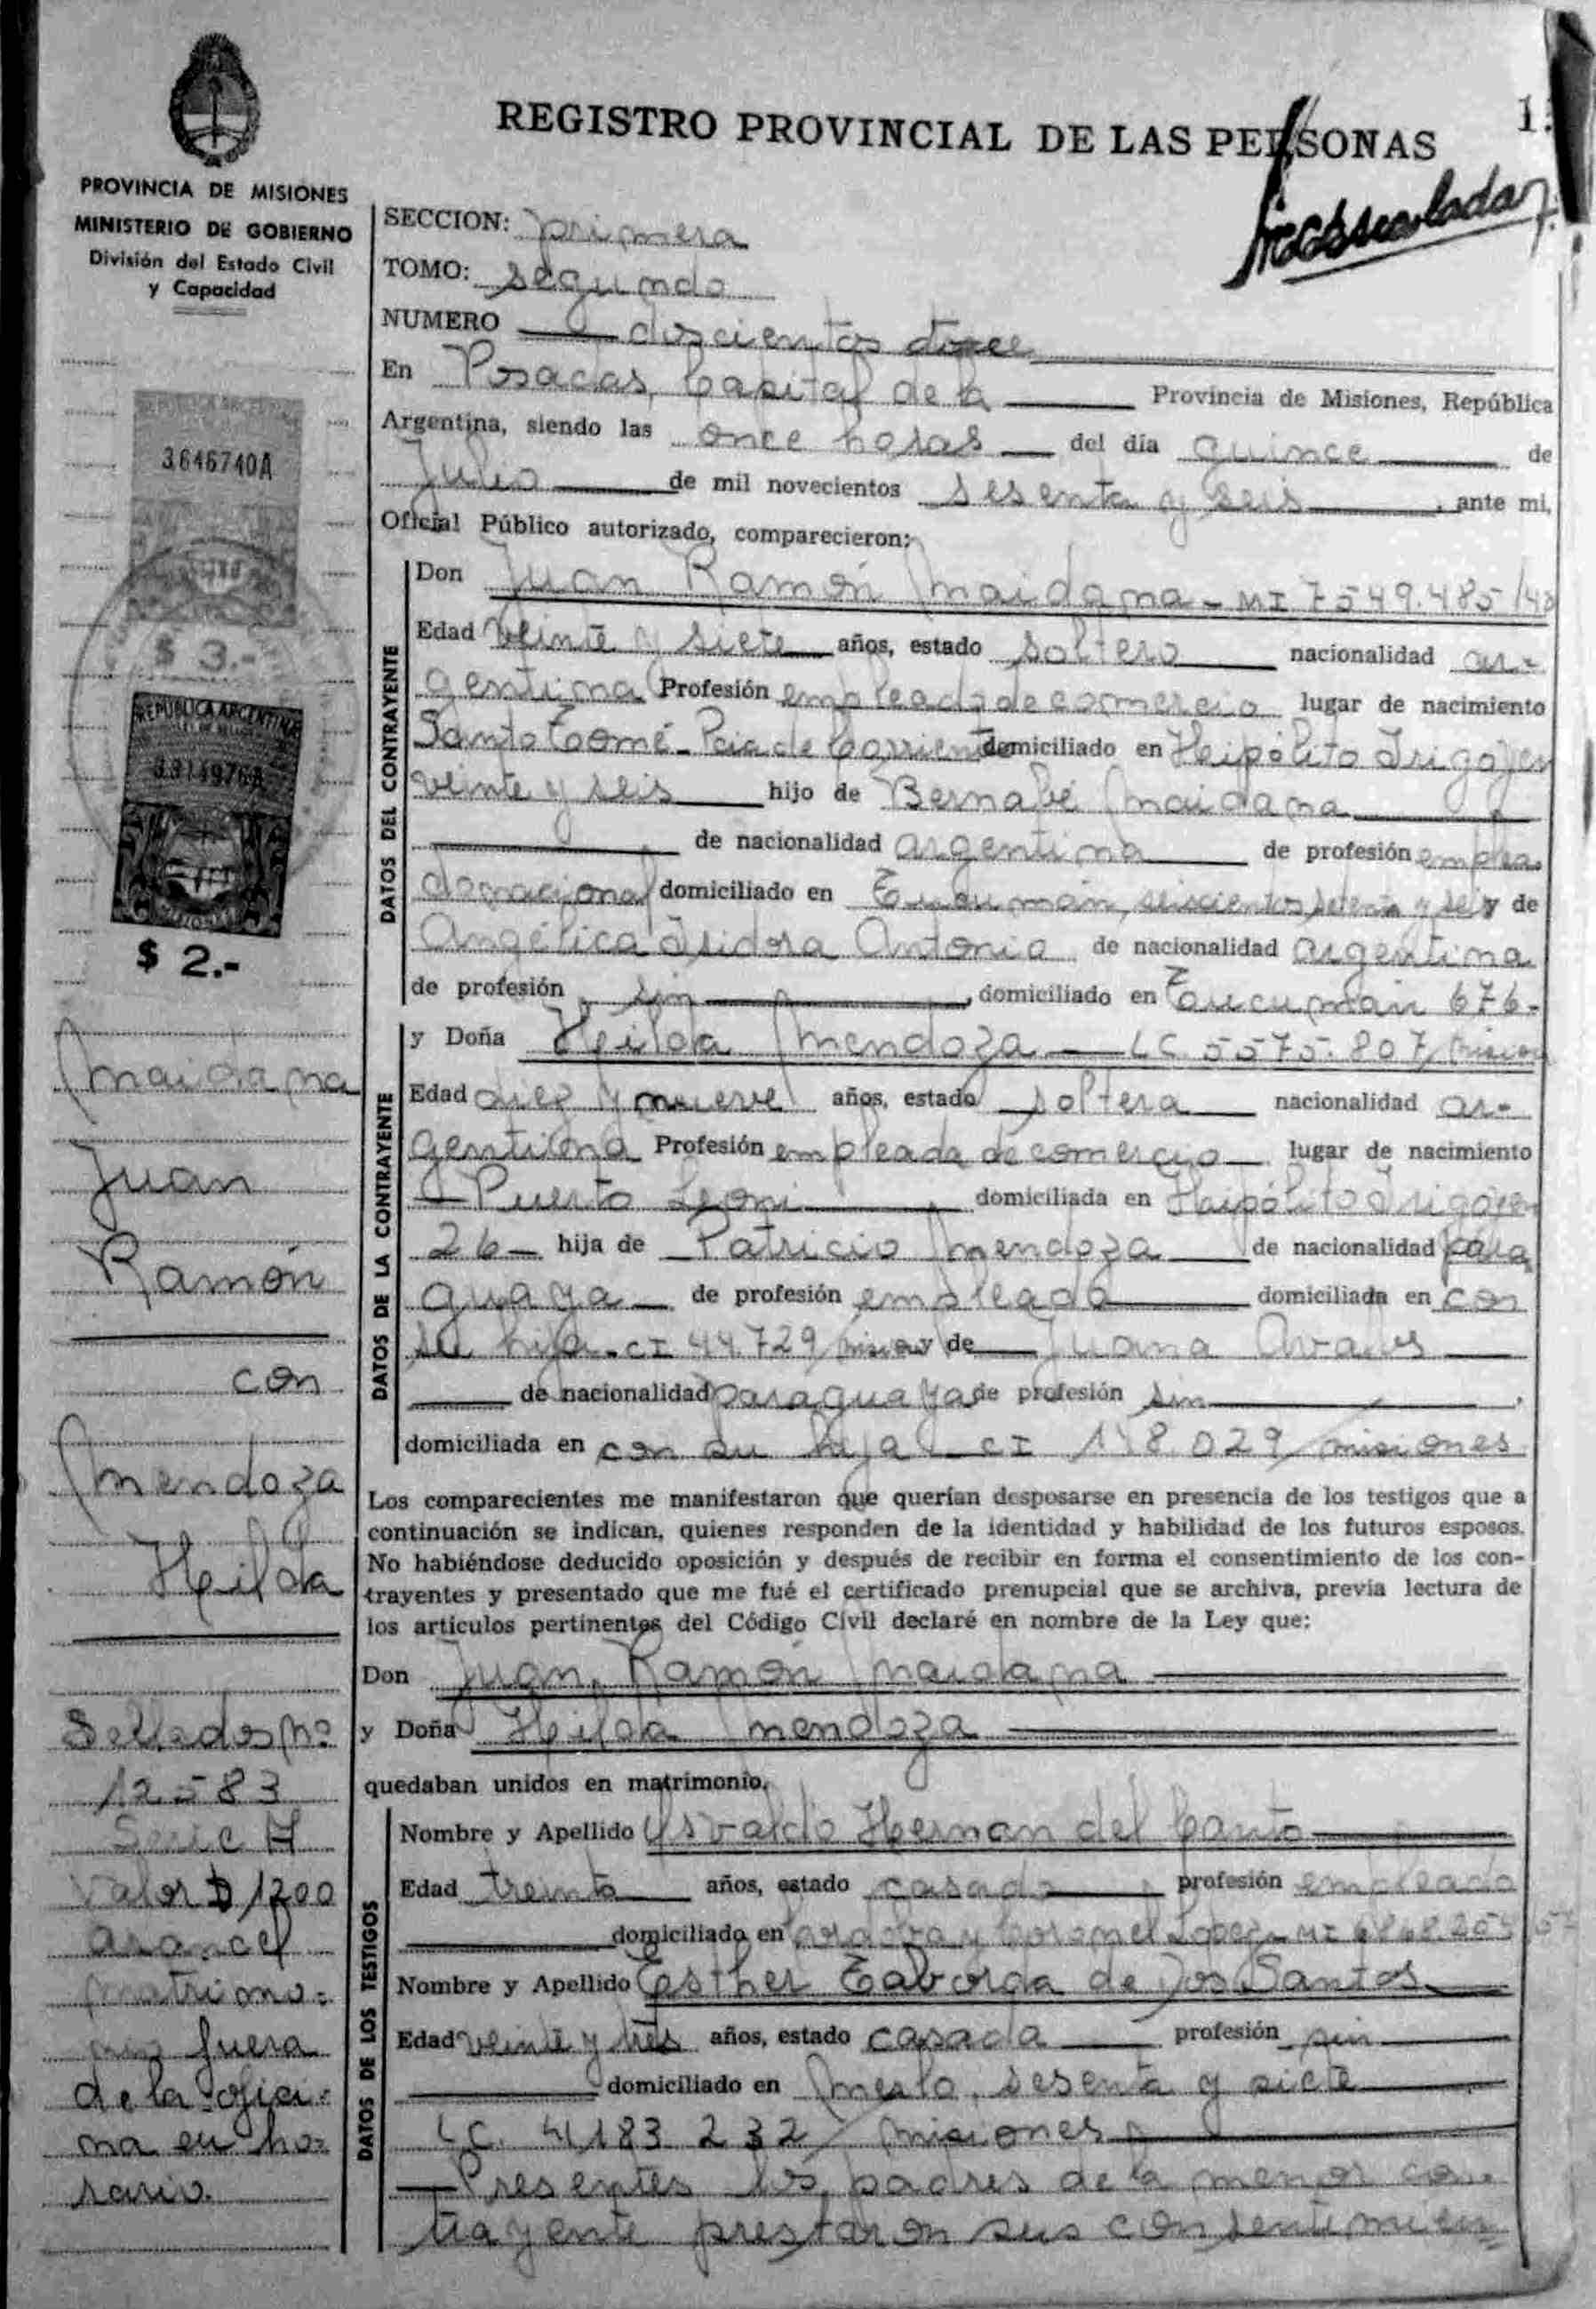 REGISTRO PROVINCIAL DE LAS PERSONAS
PROVINCIA DE MISIONES
MINISTERIO DE GOBIERNO
División del Estado Civil
y Capacidad
REPUBLICA ARGENTINA
3646740A
$ 3.-
REPUBLICA ARGENTINA
$ 2.-
Maidana
Juan
Ramón
con
Mendoza
Hilda
Sellados No
12583
Serie A
Valor $ 1200
arancel
matrimo-
nio fuera
de la ofici-
na en ho-
rario.
SECCION: primera
TOMO: segundo
NUMERO doscientos doce
En Posadas, Capital de la Provincia de Misiones, República
Argentina, siendo las once horas del día quince de
Julio de mil novecientos sesenta y seis, ante mi,
Oficial Público autorizado, comparecieron:
DATOS DEL CONTRAYENTE
Don Juan Ramón Maidana - MI 7549.485
Edad veinte y siete años, estado soltero nacionalidad ar-
gentina Profesión empleado de comercio lugar de nacimiento
Santo Tomé - Pcia de Corrientes domiciliado en Hipólito Irigoyen
veinte y seis hijo de Bernabé Maidana
de nacionalidad argentina de profesión emplea-
do nacional domiciliado en Tucumán, seiscientos setenta y seis y de
Angélica Isidora Antonio de nacionalidad argentina
de profesión sin, domiciliado en Tucumán 676-
DATOS DE LA CONTRAYENTE
y Doña Hilda Mendoza - LC. 5575.807/Misiones
Edad diez y nueve años, estado soltera nacionalidad ar-
gentina Profesión empleada de comercio lugar de nacimiento
Puerto Leoni domiciliada en Hipólito Irigoyen
26 - hija de Patricio Mendoza de nacionalidad para
guaya de profesión empleado domiciliada en con
su hija - CI 44.729/ y de Juana Avalos
de nacionalidad paraguaya de profesión sin
domiciliada en con su hija CI 118.029/misiones
Los comparecientes me manifestaron que querían desposarse en presencia de los testigos que a
continuación se indican, quienes responden de la identidad y habilidad de los futuros esposos.
No habiéndose deducido oposición y después de recibir en forma el consentimiento de los con-
trayentes y presentado que me fué el certificado prenupcial que se archiva, previa lectura de
los artículos pertinentes del Código Civil declaré en nombre de la Ley que:
Don Juan Ramón Maidana
y Doña Hilda Mendoza
quedaban unidos en matrimonio.
DATOS DE LOS TESTIGOS
Nombre y Apellido Osvaldo Hernan del Canto
Edad treinta años, estado casado profesión empleado
domiciliado en Córdoba y Coronel López - MI
Nombre y Apellido Esther Taborda de Dos Santos
Edad veinte y tres años, estado casada profesión sin
domiciliado en Merlo, sesenta y siete
LC. 4183 232/ misiones
Presentes los padres de la menor con-
trayente prestaron sus consentimien